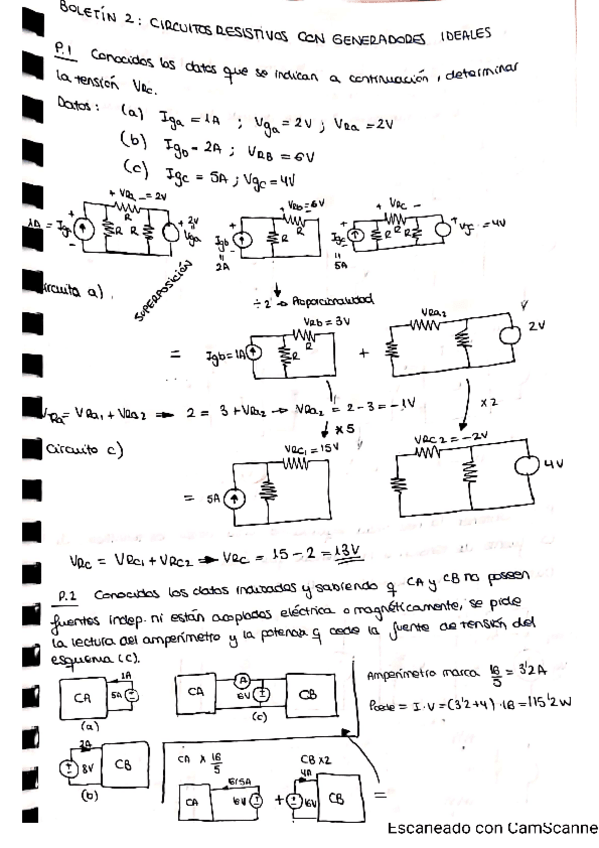 BOLETÍN 2: CIRCUITOS RESISTIVOS CON GENERADORES IDEALES
P.1 Conocidos los datos que se indican a continuación, determinar
la tensión VRC.
Datos: (a) Iga = 1A ; Vga = 2V ; VRa = 2V
(b) Igb = 2A ; VRB = 6V
(c) Igc = 5A ; Vgc = 4V
+ VRa - = 2V
1A = Iga
R
R
R
+ 2V
Vga
VRb = 6V
Igb
=
2A
R
R
+ VRC -
Igc
=
5A
R
R
R
Vgc = 4V
SUPERPOSICIÓN
Circuito a).
÷2 → Proporcionalidad
VRb = 3V
=
Igb = 1A
R
R
+
VRa2
2V
VRa = VRa1 + VRa2 → 2 = 3 + VRa2 → VRa2 = 2 - 3 = -1V
x 2
x5
Circuito c)
VRC1 = 15V
= 5A
VRC2 = -2V
4V
VRC = VRC1 + VRC2 → VRC = 15 - 2 = 13V
P.2 Conocidos los datos indicados y sabiendo q CA y CB no poseen
fuentes indep. ni están acoplados eléctrica o magnéticamente, se pide
la lectura del amperímetro y la potencia q cede la fuente de tensión del
esquema (c).
CA
1A
5V
(a)
CA
A
16V
CB
(c)
Amperímetro marca 16/5 = 3'2A
Pcede = I · V = (3'2+4) · 16 = 115'2W
2A
8V
CB
(b)
CA x 16/5
CA
16/5A
16V
+
CB x2
4A
16V
CB
=
Escaneado con CamScanne